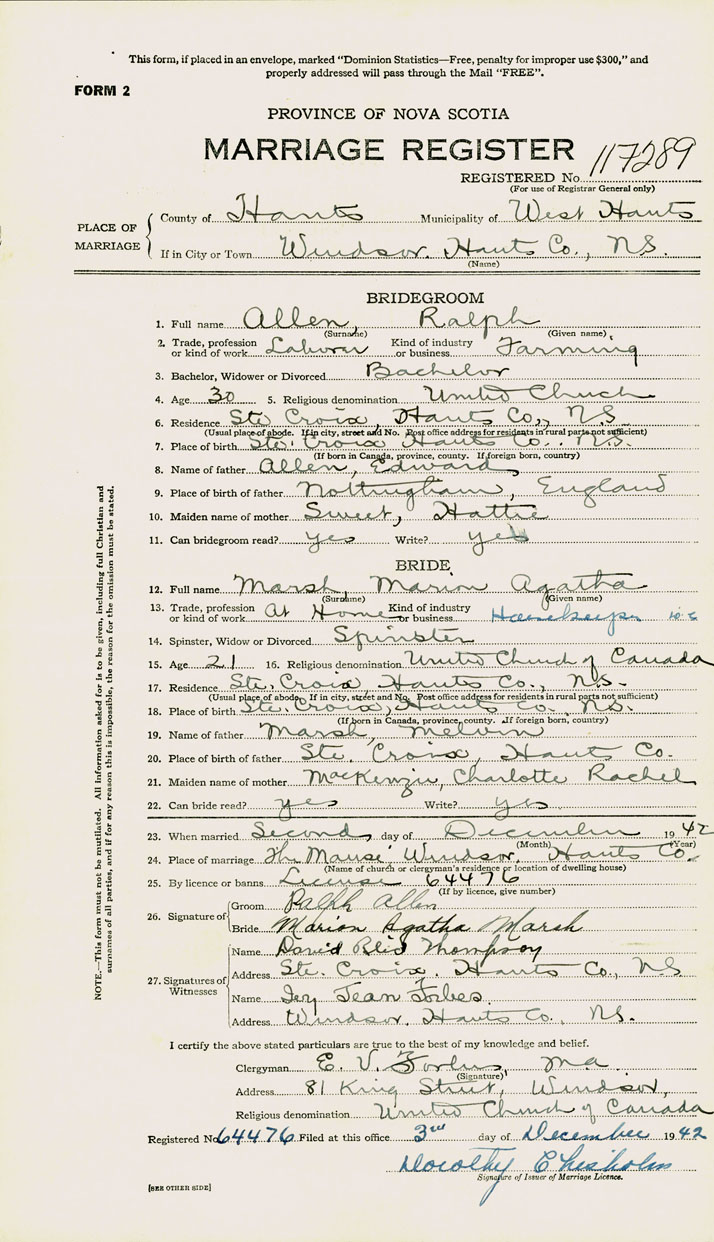 This form, if placed in an envelope, marked “Dominion Statistics—Free, penalty for improper use $300,” and
properly addressed will pass through the Mail “FREE”.
FORM 2
PROVINCE OF NOVA SCOTIA
MARRIAGE REGISTER 117289
REGISTERED No.
(For use of Registrar General only)
PLACE OF MARRIAGE
County of Hants Municipality of West Hants
If in City or Town Windsor. Hants Co., N.S.
(Name)
BRIDEGROOM
1. Full name Allen, Ralph
(Surname) (Given name)
2. Trade, profession or kind of work Laborer Kind of industry or business Farming
3. Bachelor, Widower or Divorced Bachelor
4. Age 30 5. Religious denomination United Church
6. Residence Ste Croix, Hants Co., N.S.
(Usual place of abode. If in city, street and No. Post office address for residents in rural parts not sufficient)
7. Place of birth Ste. Croix Hants Co. N.S.
(If born in Canada, province, county. If foreign born, country)
8. Name of father Allen, Edward
9. Place of birth of father Nottingham, England
10. Maiden name of mother Sweet, Hattie
11. Can bridegroom read? yes Write? yes
BRIDE
12. Full name Marsh, Marion Agatha
(Surname) (Given name)
13. Trade, profession or kind of work At Home Kind of industry or business Housekeeper
14. Spinster, Widow or Divorced Spinster
15. Age 21 16. Religious denomination United Church of Canada
17. Residence Ste. Croix, Hants Co., N.S.
(Usual place of abode. If in city, street and No. Post office address for residents in rural parts not sufficient)
18. Place of birth Ste. Croix, Hants Co. N.S.
(If born in Canada, province, county. If foreign born, country)
19. Name of father Marsh, Melvin
20. Place of birth of father Ste. Croix, Hants Co.
21. Maiden name of mother MacKenzie, Charlotte Rachel
22. Can bride read? yes Write? yes
23. When married Second day of December 1942
(Month) (Year)
24. Place of marriage The Manse Windsor. Hants Co.
(Name of church or clergyman's residence or location of dwelling house)
25. By licence or banns License 64476
(If by licence, give number)
26. Signature of
Groom Ralph Allen
Bride Marion Agatha Marsh
27. Signatures of Witnesses
Name David Reid Thompson
Address Ste. Croix. Hants Co., N.S
Name Jean Forbes.
Address Windsor. Hants Co., N.S.
I certify the above stated particulars are true to the best of my knowledge and belief.
Clergyman E. V. Forbes, M.A.
(Signature)
Address 81 King Street, Windsor,
Religious denomination United Church of Canada
Registered No. 64476 Filed at this office 3rd day of December 1942
Dorothy Chisholm
Signature of Issuer of Marriage Licence.
[SEE OTHER SIDE]
NOTE.—This form must not be mutilated. All information asked for is to be given, including full Christian and
surnames of all parties, and if for any reason this is impossible, the reason for the omission must be stated.